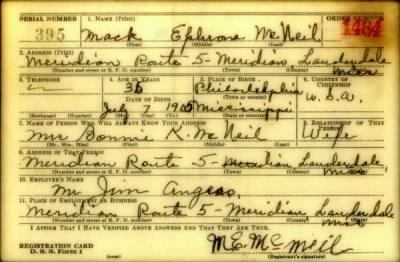 SERIAL NUMBER 1. NAME (Print) ORDER NUMBER
395 Mack Ephrom McNeil 1464
(First) (Middle) (Last)
2. ADDRESS (Print)
Meridian Route 5-Meridian, Lauderdale, Miss
(Number and street or R. F. D. number) (Town) (County) (State)
3. TELEPHONE 4. AGE IN YEARS 5. PLACE OF BIRTH 6. COUNTRY OF CITIZENSHIP
35 Philadelphia U.S.A.
DATE OF BIRTH (Town or county)
July 7 1905 Mississippi
(Exchange) (Number) (Mo.) (Day) (Yr.) (State or country)
7. NAME OF PERSON WHO WILL ALWAYS KNOW YOUR ADDRESS 8. RELATIONSHIP OF THAT PERSON
Mrs Bonnie K. McNeil Wife
(Mr., Mrs., Miss) (First) (Middle) (Last)
9. ADDRESS OF THAT PERSON
Meridian Route 5-Meridian, Lauderdale, Miss
(Number and street or R. F. D. number) (Town) (County) (State)
10. EMPLOYER'S NAME
Mr Jim
11. PLACE OF EMPLOYMENT OR BUSINESS
Meridian Route 5-Meridian, Lauderdale Miss
(Number and street or R. F. D. number) (Town) (County) (State)
I AFFIRM THAT I HAVE VERIFIED ABOVE ANSWERS AND THAT THEY ARE TRUE.
REGISTRATION CARD
D. S. S. Form 1
M.E. McNeil
(Registrant's signature)